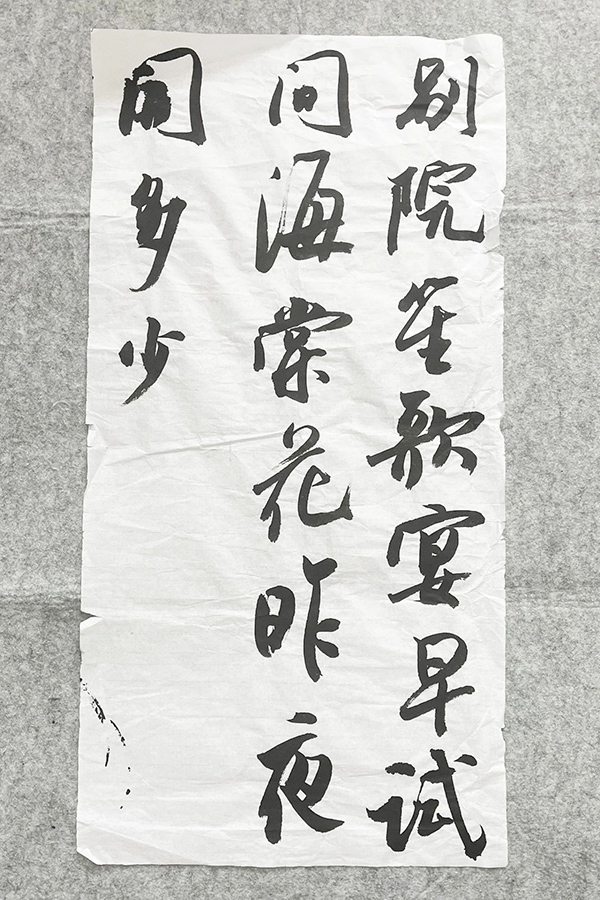 别院笙歌宴早试
问海棠花昨夜
开多少